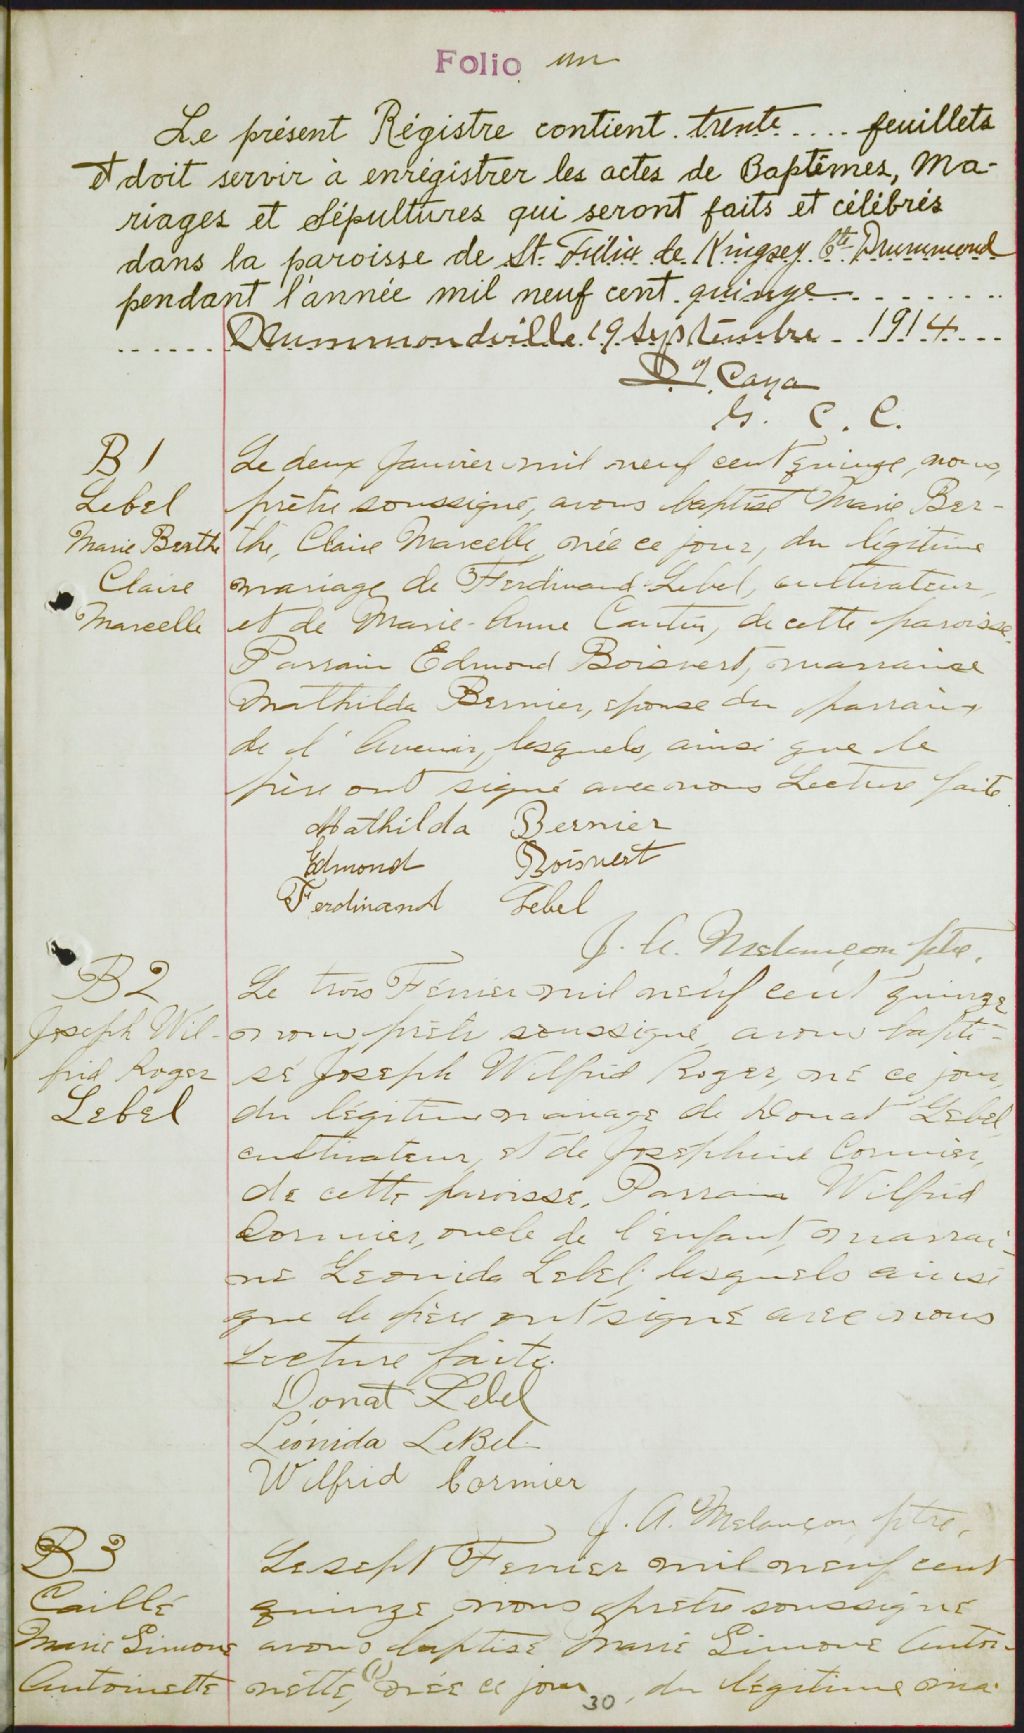 Folio un
Le présent Régistre contient trente .... feuillets
et doit servir à enrégistrer les actes de Baptêmes, Ma-
riages et Sépultures qui seront faits et célébrés
dans la paroisse de St. Félix de Kingsey Cté Drummond
pendant l'année mil neuf cent quinze
Drummondville 19 Septembre 1914
Caya
G. C. C.
B 1
Lebel
Marie Berthe
Claire
Marcelle
Le deux Janvier mil neuf cent quinze, nous,
prêtre soussigné, avons baptisé Marie Ber-
the, Claire Marcelle, née ce jour, du légitime
mariage de Ferdinand Lebel, cultivateur,
et de Marie-Anne Cantin, de cette paroisse.
Parrain Edmond Boisvert, marraine
Mathilda Bernier, épouse du parrain,
de l'Avenir, lesquels, ainsi que le
père ont signé avec nous Lecture faite
Mathilda Bernier
Edmond Boisvert
Ferdinand Lebel
J. A. Melançon ptre.
B2
Joseph Wil-
frid Roger
Lebel
Le trois Février mil neuf cent quinze
nous prêtre soussigné avons bapti-
sé Joseph Wilfrid Roger, né ce jour,
du légitime mariage de Donat Lebel,
cultivateur, et de Joséphine Cormier,
de cette paroisse. Parrain Wilfrid
Cormier, oncle de l'enfant, marrai-
ne Leonida Lebel, lesquels ainsi
que le père ont signé avec nous
Lecture faite.
Donat Lebel
Léonida LeBel
Wilfrid Cormier
J. A. Melançon, ptre.
B3
Caillé
Marie Simone
Antoinette
Le sept Fevrier mil neuf cent
quinze nous prêtre soussigné
avons baptisé Marie Simone Antoi-
nette, (1) née ce jour, du légitime ma-
30